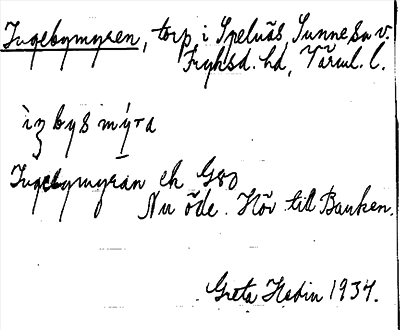 Ingebymyren, torp i Spelnäs Sunne sn v.
Fryksd. hd, Värml. l.
Ingebymyran ek G
Nu öde. Hör till Banken.
Greta Hedin 1934.